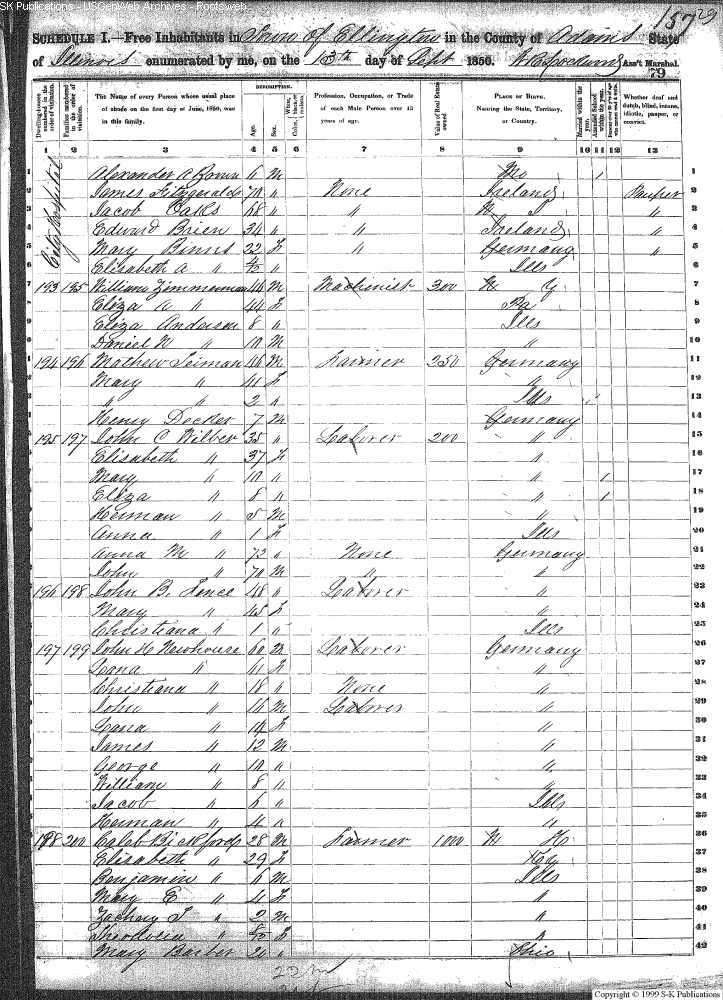 SK Publications - USGenWeb Archives - Rootsweb
157 29
SCHEDULE I.—Free Inhabitants in Town of Ellington in the County of Adams State
of Illinois enumerated by me, on the 13th day of Sept 1850. Ass't Marshal.
79
Dwelling-houses numbered in the order of visitation.
Families numbered in the order of visitation.
The Name of every Person whose usual place of abode on the first day of June, 1850, was in this family.
DESCRIPTION.
Age.
Sex.
Color, White, black, or mulatto.
Profession, Occupation, or Trade of each Male Person over 15 years of age.
Value of Real Estate owned
PLACE OF BIRTH. Naming the State, Territory, or Country.
Married within the year.
Attended School within the year.
Whether deaf and dumb, blind, insane, idiotic, pauper, or convict.
1 2 3 4 5 6 7 8 9 10 11 12 13
City Hospital
1 Alexander A Brown 6 m Mo / 1
2 James Fitzgerald 70 " None Ireland Pauper 2
3 Jacob Oaks 68 " " " 3
4 Edward Brien 34 " " Ireland " 4
5 Mary Binns 22 f " Germany " 5
6 Elisabeth A " " Ills 6
7 193 195 William Zimmerman 46 m Machinist 300 N Y 7
8 Eliza A " 44 f Pa 8
9 Eliza Anderson 8 " Ills 9
10 Daniel N " 10 m " 10
11 194 196 Mathew Seiman 46 m Farmer 250 Germany 11
12 Mary " 41 f " 12
13 " " 2 " Ills 13
14 Henry Decker 7 m Germany 14
15 195 197 John C Wilber 35 " Laborer 200 " 15
16 Elisabeth " 37 f " 16
17 Mary " 10 " " / 17
18 Eliza " 8 " " / 18
19 Herman " 5 m " 19
20 Anna " 1 f Ills 20
21 Anna M " 72 " None Germany 21
22 John " 70 m " " 22
23 196 198 John B. Lence 48 " Laborer " 23
24 Mary " 45 f " 24
25 Christiana " 1 " Ills 25
26 197 199 John H Newhouse 60 m Laborer Germany 26
27 Lana " 41 f " 27
28 Christiana " 18 " None " 28
29 John " 16 m Laborer " 29
30 Lana " 14 f " 30
31 James " 12 m " 31
32 George " 10 " " 32
33 William " 8 " " 33
34 Jacob " 6 " Ills 34
35 Herman " 4 " " 35
36 198 200 Caleb Bickford 28 m Farmer 1000 N H 36
37 Elisabeth " 29 f Ky 37
38 Benjamin " 6 m Ills 38
39 Mary E " 4 f " 39
40 Zachery T " 2 m " 40
41 Theodocia " f " 41
42 Mary Barber 20 " Ohio 42
Copyright © 1999 S-K Publications